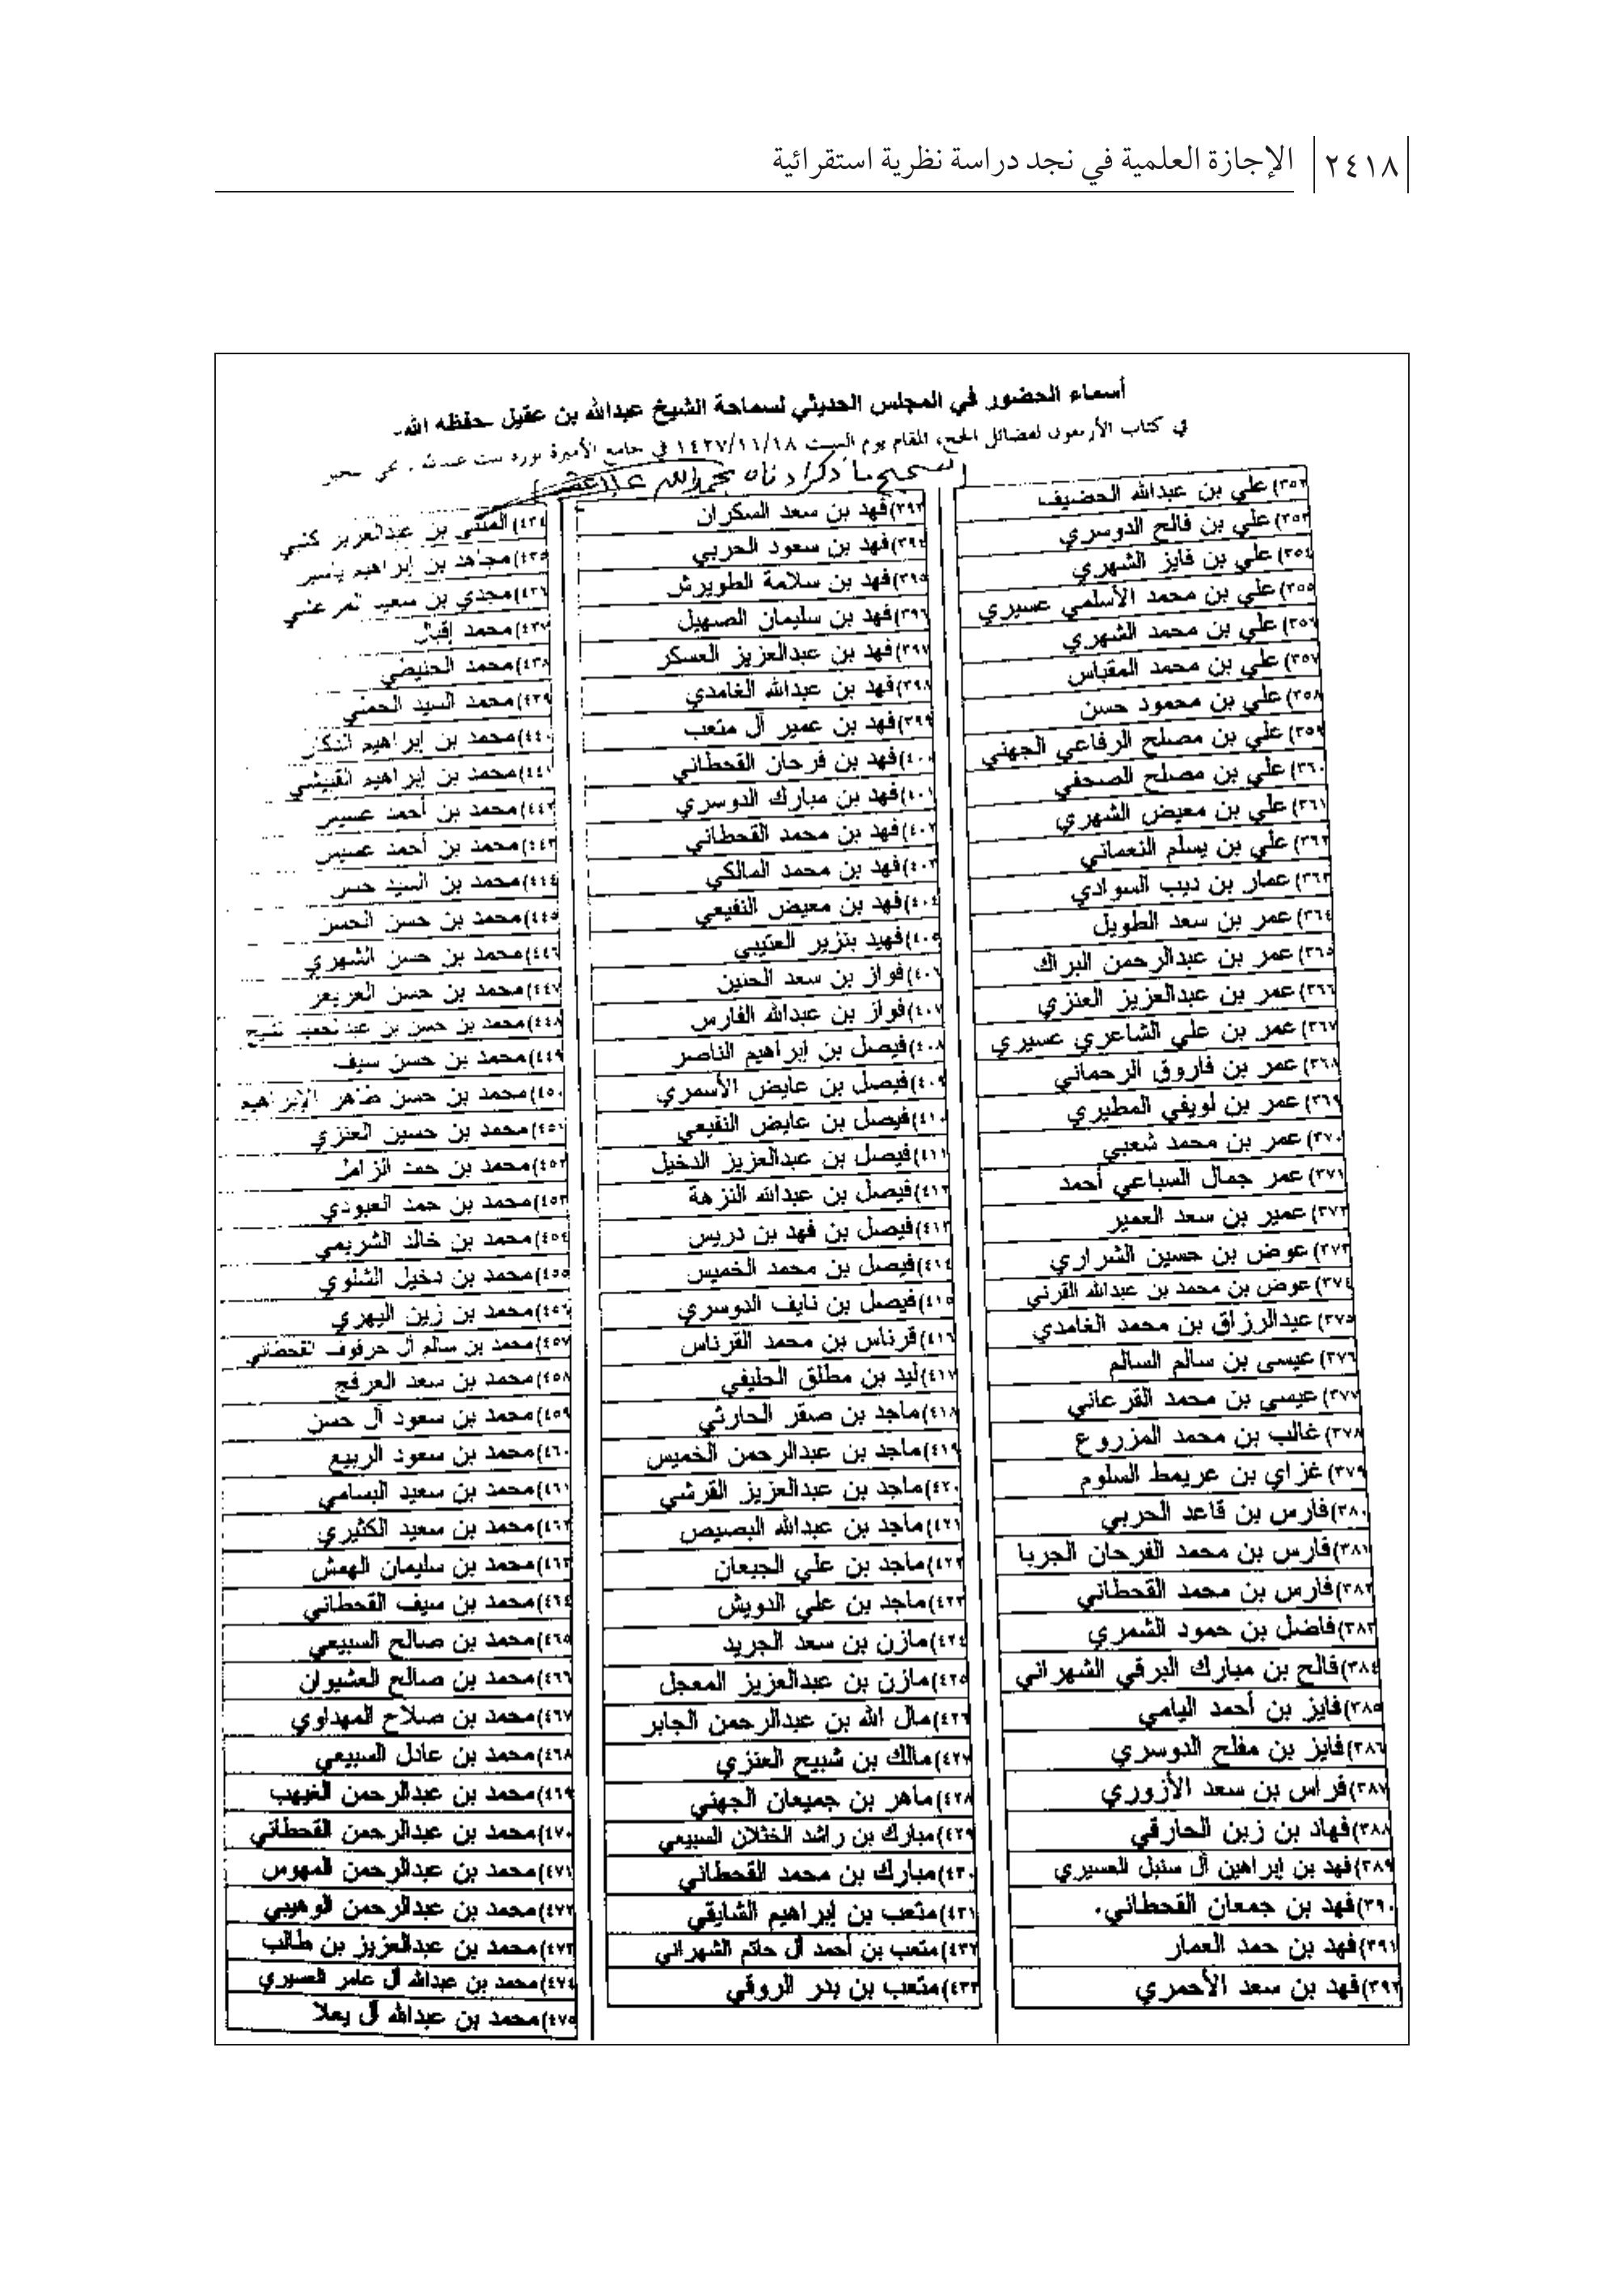 ٢٤١٨ الإجازة العلمية في نجد دراسة نظرية استقرائية
أسماء الحضور في المجلس الحديثي لسماحة الشيخ عبدالله بن عقيل -حفظه الله-
في كتاب الأربعون لفضائل الحج، المقام يوم السبت ١٤٢٧/١١/١٨ في جامع الأميرة نورة بنت عبدالله
٣٥٢)علي بن عبدالله الحضيف
٣٥٣)علي بن فالح الدوسري
٣٥٤)علي بن فايز الشهري
٣٥٥)علي بن محمد الأسلمي عسيري
٣٥٦)علي بن محمد الشهري
٣٥٧)علي بن محمد المقباس
٣٥٨)علي بن محمود حسن
٣٥٩)علي بن مصلح الرفاعي الجهني
٣٦٠)علي بن مصلح الصحفي
٣٦١)علي بن معيض الشهري
٣٦٢)علي بن يسلم النعماني
٣٦٣)عمار بن ديب السوادي
٣٦٤)عمر بن سعد الطويل
٣٦٥)عمر بن عبدالرحمن البراك
٣٦٦)عمر بن عبدالعزيز العنزي
٣٦٧)عمر بن علي الشاعري عسيري
٣٦٨)عمر بن فاروق الرحماني
٣٦٩)عمر بن لويفي المطيري
٣٧٠)عمر بن محمد شعبي
٣٧١)عمر جمال السباعي أحمد
٣٧٢)عمير بن سعد العمير
٣٧٣)عوض بن حسين الشراري
٣٧٤)عوض بن محمد بن عبدالله القرني
٣٧٥)عبدالرزاق بن محمد الغامدي
٣٧٦)عيسى بن سالم السالم
٣٧٧)عيسى بن محمد القرعاني
٣٧٨)غالب بن محمد المزروع
٣٧٩)غزاي بن عريمط السلوم
٣٨٠)فارس بن قاعد الحربي
٣٨١)فارس بن محمد الفرحان الجربا
٣٨٢)فارس بن محمد القحطاني
٣٨٣)فاضل بن حمود الشمري
٣٨٤)فالح بن مبارك البرقي الشهراني
٣٨٥)فايز بن أحمد اليامي
٣٨٦)فايز بن مفلح الدوسري
٣٨٧)فراس بن سعد الأزوري
٣٨٨)فهاد بن زبن الحارقي
٣٨٩)فهد بن إبراهين آل سنبل العسيري
٣٩٠)فهد بن جمعان القحطاني.
٣٩١)فهد بن حمد العمار
٣٩٢)فهد بن سعد الأحمري
٣٩٣)فهد بن سعد السكران
٣٩٤)فهد بن سعود الحربي
٣٩٥)فهد بن سلامة الطويرش
٣٩٦)فهد بن سليمان الصهيل
٣٩٧)فهد بن عبدالعزيز العسكر
٣٩٨)فهد بن عبدالله الغامدي
٣٩٩)فهد بن عمير آل متعب
٤٠٠)فهد بن فرحان القحطاني
٤٠١)فهد بن مبارك الدوسري
٤٠٢)فهد بن محمد القحطاني
٤٠٣)فهد بن محمد المالكي
٤٠٤)فهد بن معيض النفيعي
٤٠٥)فهيد بنزير العتيبي
٤٠٦)فواز بن سعد الحنين
٤٠٧)فواز بن عبدالله الفارس
٤٠٨)فيصل بن إبراهيم الناصر
٤٠٩)فيصل بن عايض الأسمري
٤١٠)فيصل بن عايض النفيعي
٤١١)فيصل بن عبدالعزيز الدخيل
٤١٢)فيصل بن عبدالله النزهة
٤١٣)فيصل بن فهد بن دريس
٤١٤)فيصل بن محمد الخميس
٤١٥)فيصل بن نايف الدوسري
٤١٦)قرناس بن محمد القرناس
٤١٧)ليد بن مطلق الحليفي
٤١٨)ماجد بن صقر الحارثي
٤١٩)ماجد بن عبدالرحمن الخميس
٤٢٠)ماجد بن عبدالعزيز القرشي
٤٢١)ماجد بن عبدالله البصيص
٤٢٢)ماجد بن علي الجيعان
٤٢٣)ماجد بن علي الدويش
٤٢٤)مازن بن سعد الجريد
٤٢٥)مازن بن عبدالعزيز المعجل
٤٢٦)مال الله بن عبدالرحمن الجابر
٤٢٧)مالك بن شبيح العنزي
٤٢٨)ماهر بن جميعان الجهني
٤٢٩)مبارك بن راشد الخثلان السبيعي
٤٣٠)مبارك بن محمد القحطاني
٤٣١)متعب بن إبراهيم الشايقي
٤٣٢)متعب بن أحمد آل حاتم الشهراني
٤٣٣)متعب بن بدر الروقي
٤٣٤)المثنى بن عبدالعزيز
٤٣٥)مجاهد بن إبراهيم ياسر
٤٣٦)مجدي بن سعيد
٤٣٧)محمد إقبال
٤٣٨)محمد الحنيضي
٤٣٩)محمد السيد الحمني
٤٤٠)محمد بن إبراهيم
٤٤١)محمد بن إبراهيم القبيشي
٤٤٢)محمد بن أحمد عسير
٤٤٣)محمد بن أحمد عسيس
٤٤٤)محمد بن السيد حسن
٤٤٥)محمد بن حسن الحسن
٤٤٦)محمد بن حسن الشهري
٤٤٧)محمد بن حسن العريعر
٤٤٨)محمد بن حسن بن
٤٤٩)محمد بن حسن سيف
٤٥٠)محمد بن حسن ظاهر الإبراهيم
٤٥١)محمد بن حسين العنزي
٤٥٢)محمد بن حمد الزامل
٤٥٣)محمد بن حمد العبودي
٤٥٤)محمد بن خالد الشريمي
٤٥٥)محمد بن دخيل الشلوي
٤٥٦)محمد بن زين اليهري
٤٥٧)محمد بن سالم آل حرفوف القحطاني
٤٥٨)محمد بن سعد العرفج
٤٥٩)محمد بن سعود آل حسن
٤٦٠)محمد بن سعود الربيع
٤٦١)محمد بن سعيد البسامي
٤٦٢)محمد بن سعيد الكثيري
٤٦٣)محمد بن سليمان الهمش
٤٦٤)محمد بن سيف القحطاني
٤٦٥)محمد بن صالح السبيعي
٤٦٦)محمد بن صالح العشيوان
٤٦٧)محمد بن صلاح المهداوي
٤٦٨)محمد بن عادل السبيعي
٤٦٩)محمد بن عبدالرحمن الغيهب
٤٧٠)محمد بن عبدالرحمن القحطاني
٤٧١)محمد بن عبدالرحمن المهوس
٤٧٢)محمد بن عبدالرحمن الوهيبي
٤٧٣)محمد بن عبدالعزيز بن طالب
٤٧٤)محمد بن عبدالله آل عامر العسيري
٤٧٥)محمد بن عبدالله آل يعلا